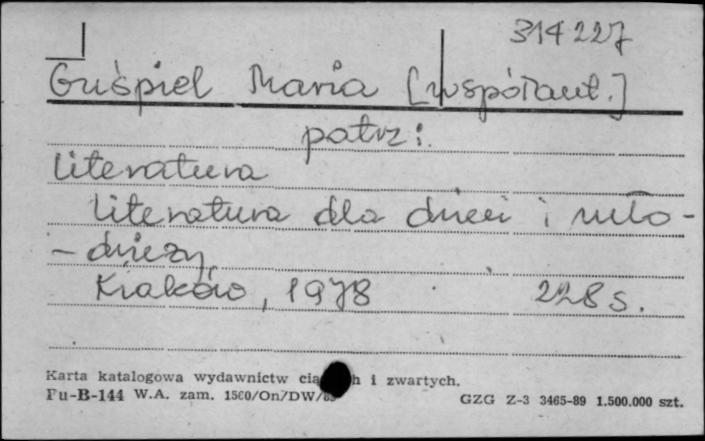 314227
Guśpiel Maria [współaut.]
patrz:
Literatura
Literatura dla dzieci i mło-
- dzieży
Kraków, 1978 228 s.
Karta katalogowa wydawnictw h i zwartych.
Pu-B-144 W.A. zam. 1560/On/DW/ GZG Z-3 3465-89 1.500.000 szt.